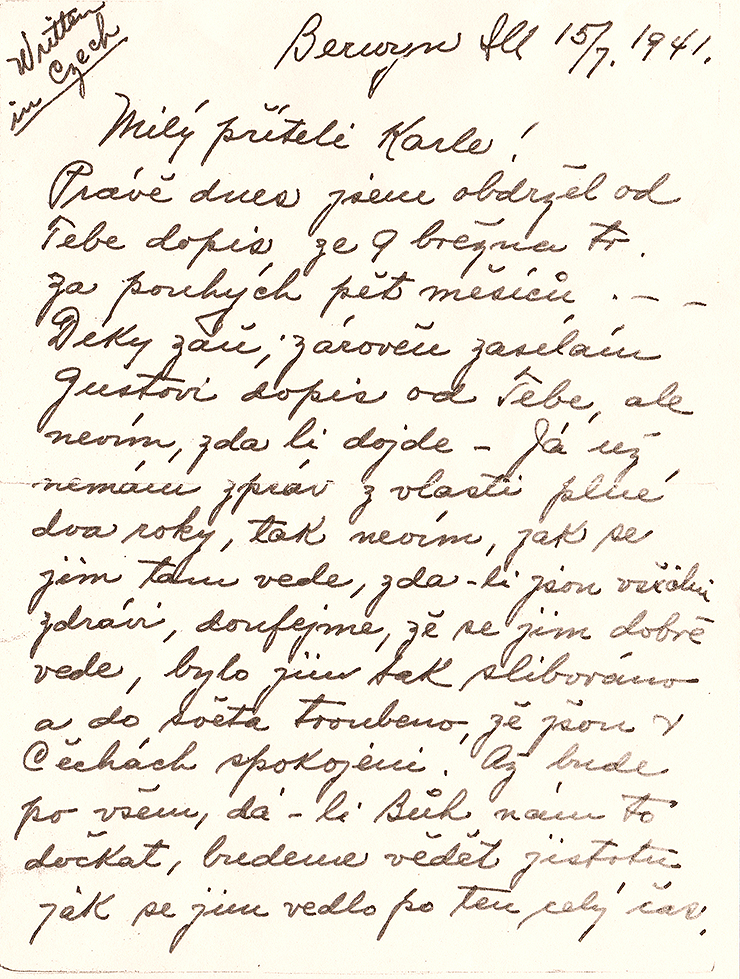 Written
in Czech
Berwyn Ill 15/7. 1941.
Milý příteli Karle!
Právě dnes jsem obdržel od
Tebe dopis ze 9 března tr.
za pouhých pět měsíců . – –
Deky zaň, zároveň zasílám
Gustovi dopis od Tebe, ale
nevím, zda li dojde – Já už
nemám zpráv z vlasti plné
dva roky, tak nevím, jak se
jim tam vede, zda-li json všichni
zdrávi, doufejme, že se jim dobře
vede, bylo jim tak slibováno
a do světa troubeno, že json v
Čechách spokojeni. Až bude
po všem, dá-li Bůh nám to
dočkat, budeme vědět jistotu
jak se jim vedlo po ten celý čas.